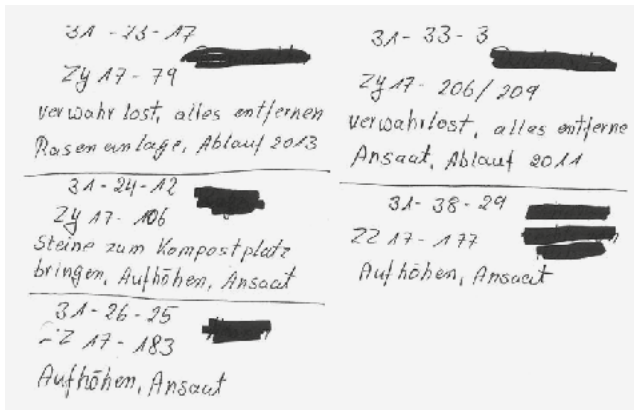 31-23-17
Zy 17-79
verwahrlost, alles entfernen
Rasenanlage, Ablauf 2013
31-24-12
Zy 17-106
Steine zum Kompostplatz
bringen, Aufhöhen, Ansaat
31-26-25
ZZ 17-183
Aufhöhen, Ansaat
31-33-3
Zy 17-206/209
verwahrlost, alles entferne
Ansaat, Ablauf 2011
31-38-29
ZZ 17-177
Aufhöhen, Ansaat